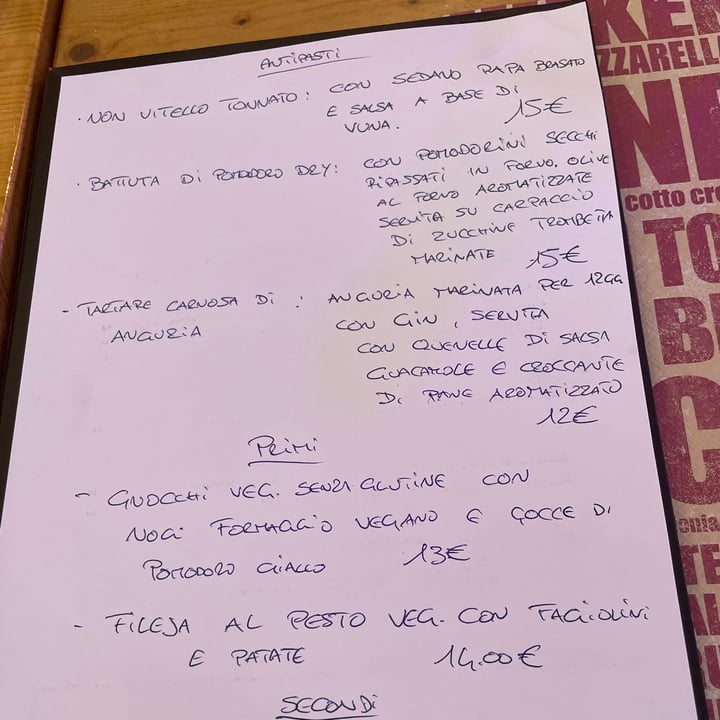 ANTIPASTI
· NON VITELLO TONNATO: CON SEDANO RAPA BRASATO
E SALSA A BASE DI
VUNA. 15€
· BATTUTA DI POMODORO DRY: CON POMODORINI SECCHI
RIPASSATI IN FORNO, OLIVE
AL FORNO AROMATIZZATE
SERVITA SU CARPACCIO
DI ZUCCHINE TROMBETTA
MARINATE 15€
- TARTARE CARNOSA DI : ANGURIA MARINATA PER 12GG
ANGURIA CON GIN, SERVITA
CON QUENELLE DI SALSA
GUACAMOLE E CROCCANTE
DI PANE AROMATIZZATO
12€
PRIMI
- GNOCCHI VEG. SENZA GLUTINE CON
NOCI FORMAGGIO VEGANO E GOCCE DI
POMODORO GIALLO 13€
- FILEJA AL PESTO VEG. CON FAGIOLINI
E PATATE 14.00€
SECONDI
KEN
ZZARELL
NE
cotto cr
TO
B
C
onia
TE